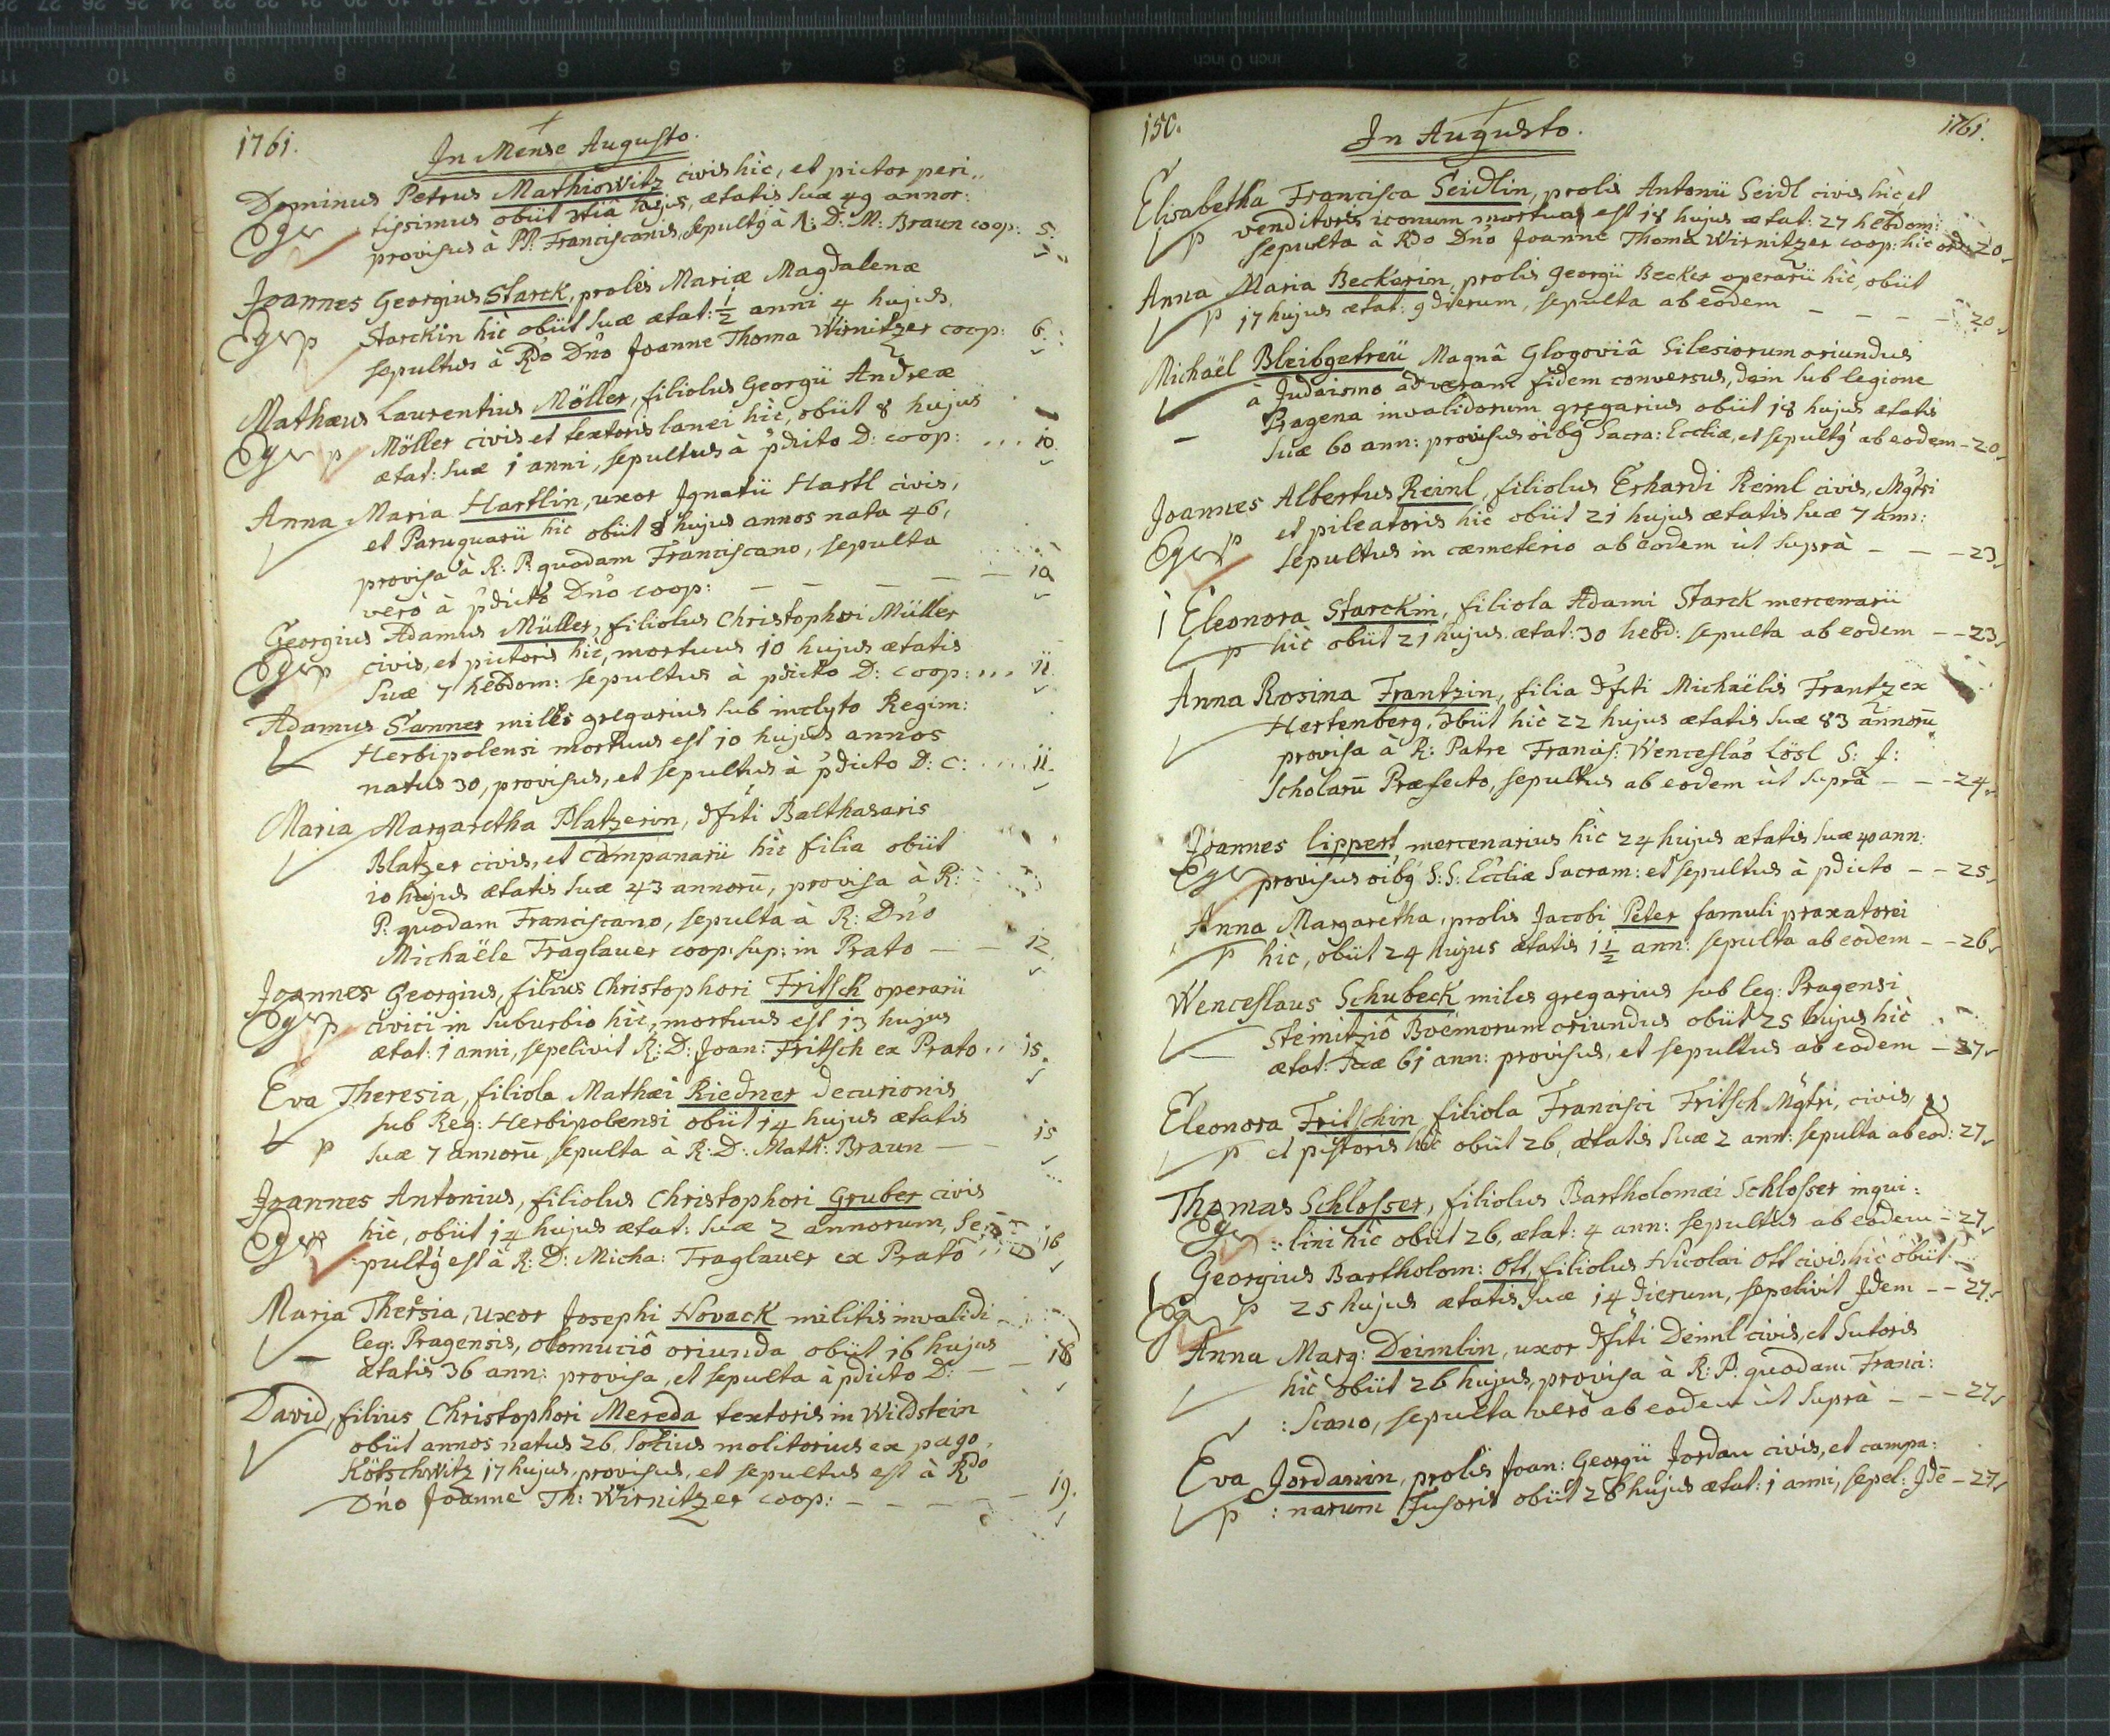 1761.
In Mense Augusto.
Dominus Petrus Mathiowitz civis hìc, et pictor peri,,
Eger tissimus obiit 3tiâ hujus, ætatis suæ 49 annor:
provisus à PP. Franciscanis, sepultq à R: D: M: Braun coop: 5.
Joannes Georgius Starck, prolis Mariæ Magdalenæ
Eger p Starckin hìc obiit suæ ætat: 1/2 anni 4 hujus,
sepultus à Rdo Dno Joanne Thoma Wirnitzer coop: 6.
Mathæus Laurentius Möller, filiolus Georgii Andreæ
Eger p Möller civis et textoris lanei hìc, obiit 8 hujus
ætat: suæ 1 anni, sepultus à pdicto D: coop: ... 10.
Anna Maria Hartlin, uxor Ignatii Hartl civis,
et Paruquarii hìc obiit 8 hujus annos nata 46,
provisa à R: P. quodam Franciscano, sepulta
verò à pdicto Dno coop: — — — — — 10
Georgius Adamus Müller, filiolus Christophori Müller
Eger p civis, et pictoris hìc, mortuus 10 hujus ætatis
suæ 7 hebdom: sepultus à pdicto D: coop: ... 11.
Adamus Sanner miles gregarius sub inclyto Regim:
Herbipolensi mortuus est 10 hujus annos
natus 30, provisus, et sepultus à pdicto D: C: .... 11.
Maria Margaretha Platzerin, dfcti Balthasaris
Blatzer civis, et campanarii hìc filia obiit
10 hujus ætatis suæ 43 annorū, provisa à R:
P: quodam Franciscano, sepulta à R: Dno
Michaële Fraglauer coop: sup: in Prato — — 12.
Joannes Georgius, filius Christophori Fritsch operarii
Eger p civici in suburbio hìc, mortuus est 13 hujus
ætat: 1 anni, sepelivit R: D: Joan: Fritsch ex Prato .. 15.
Eva Theresia, filiola Mathæi Riedner decurionis
p sub Reg: Herbipolensi obiit 14 hujus ætatis
suæ 7 annorū, sepulta à R: D: Math: Braun — — 15
Joannes Antonius, filiolus Christophori Gruber civis
Eger hìc, obiit 14 hujus ætat: suæ 2 annorum, se:
pultq est à R: D: Micha: Fraglauer ex Prato 16
Maria Thersia, uxor Josephi Novack militis invalidi
leg: Pragensis, Olomuciô oriunda obiit 16 hujus
ætatis 36 ann: provisa, et sepulta à pdicto D: — — 18
David, filius Christophori Mereda textoris in Wildstein
obiit annos natus 26, socius molitorius ex pago
Kötschwitz 17 hujus, provisus, et sepultus est à Rdo
Dno Joanne Th: Wirnitzer coop: — — — — — 19.
150.
In Augusto.
1761.
Elisabetha Francisca Seidlin, prolis Antonii Seidl civis hìc et
p venditoris iconum mortua est 18 hujus ætat: 27 hebdom:
sepulta à Rdo Dno Joanne Thoma Wirnitzer coop: hìc 20.
Anna Maria Beckerin, prolis Georgii Becker operarii hìc, obiit
p 17 hujus ætat: 9 dierum, sepulta ab eodem — — — — 20.
Michaël Bleibgetreü Magnâ Glogoviâ Silesiorum oriundus
à Judaismo ad veram fidem conversus, dein sub legione
Pragena invalidorum gregarius obiit 18 hujus ætatis
suæ 60 ann: provisus oibq Sacra: Eccliæ, et sepultq ab eodem — 20.
Joannes Albertus Reinl, filiolus Erhardi Reinl civis, Mgtri
Eger p et pileatoris hìc obiit 21 hujus ætatis suæ 7 ann:
sepultus in cæmeterio ab eodem ùt suprà — — — 23.
Eleonora Starckin, filiola Adami Starck mercenarii
p hìc obiit 21 hujus ætat: 30 hebd: sepulta ab eodem — — 23.
Anna Rosina Frantzin, filia dfcti Michaëlis Frantz ex
Hertenberg, obiit hìc 22 hujus ætatis suæ 83 annorū
provisa à R: Patre Francis: Wenceslao Lösl S: J:
Scholarū Præfecto, sepultus ab eodem ùt suprà — — — 24.
Joannes Lippert, mercenarius hìc 24 hujus ætatis suæ 40 ann:
Eger provisus oibq S: S: Eccliæ Sacram: et sepultus à pdicto — — 25.
Anna Margaretha, prolis Jacobi Peter famuli praxatorei
p hìc, obiit 24 hujus ætatis 1 1/2 ann: sepulta ab eodem — — 26.
Wenceslaus Schubeck miles gregarius sub leg: Pragensi
Steinitziô Boëmorum oriundus obiit 25 hujus hìc
ætat: suæ 61 ann: provisus, et sepultus ab eodem — 27.
Eleonora Fritschin, filiola Francisci Fritsch Mgtri, civis,
p et pistoris hìc obiit 26, ætatis suæ 2 ann: sepulta ab eod: 27.
Thomas Schlosser, filiolus Bartholomæi Schlosser inqui:
Eger : lini hìc obiit 26, ætat: 4 ann: sepultus ab eodem — 27.
Georgius Bartholom: Ott, filiolus Nicolai Ott civis hìc obiit
Eger p 25 hujus ætatis suæ 14 dierum, sepelivit Idem — — 27.
Anna Marg: Deimlin, uxor dfcti Deiml civis, et sutoris
hìc obiit 26 hujus, provisa à R: P: quodam Franci:
: scano, sepulta verò ab eodem ùt suprà — — — 27.
Eva Jordanin, prolis Joan: Georgii Jordan civis, et campa:
p : narum fusoris obiit 26 hujus ætat: 1 anni, sepel: Idē — 27.